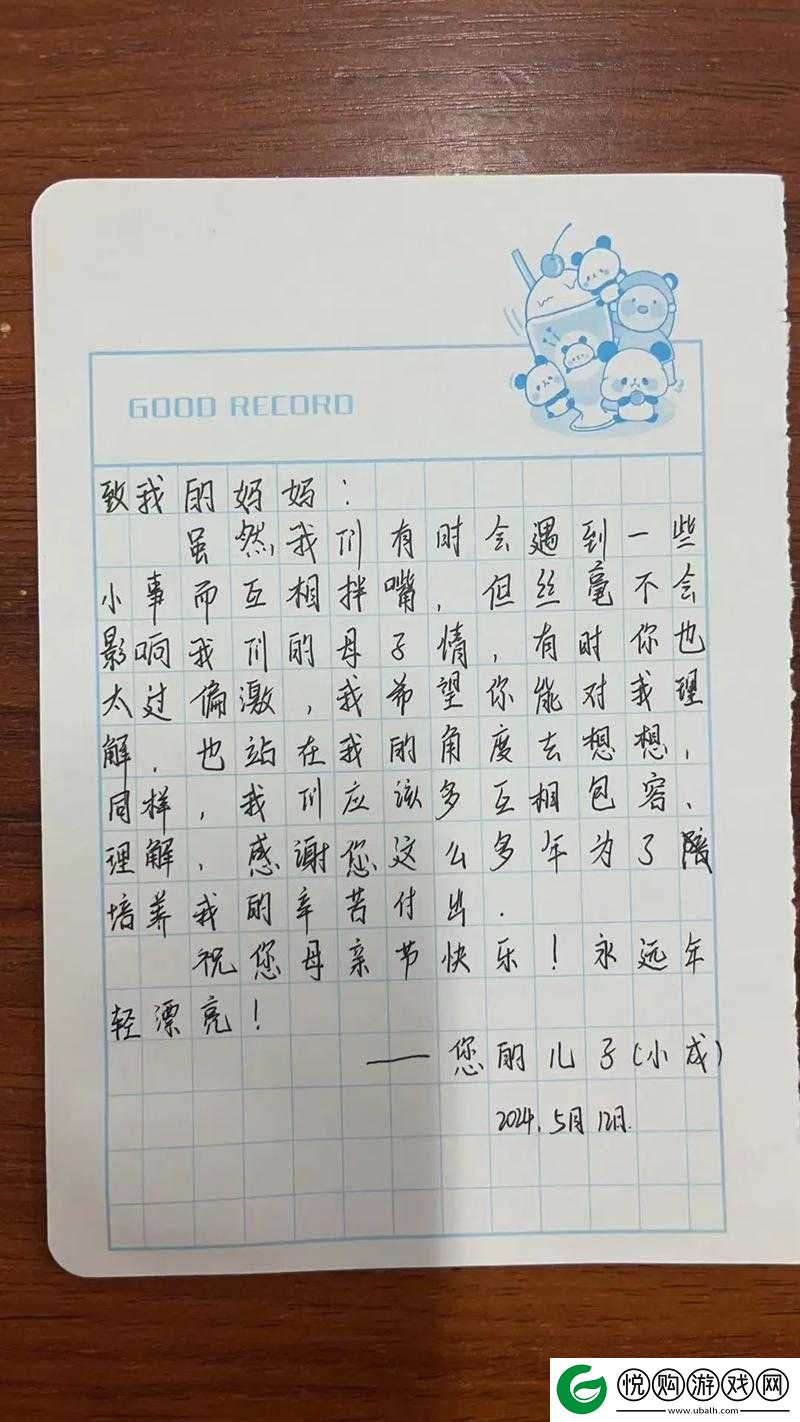 GOOD RECORD
致我的妈妈：
虽然我们有时会遇到一些
小事而互相拌嘴，但丝毫不会
影响我们的母子情，有时你也
太过偏激，我希望你能对我理
解，也站在我的角度去想想，
同样，我们应该多互相包容、
理解，感谢您这么多年为了陪
培养我的辛苦付出．
祝您母亲节快乐！永远年
轻漂亮！
——您的儿子(小成)
2024.5月12日.
悦购游戏网
www.ubalh.com